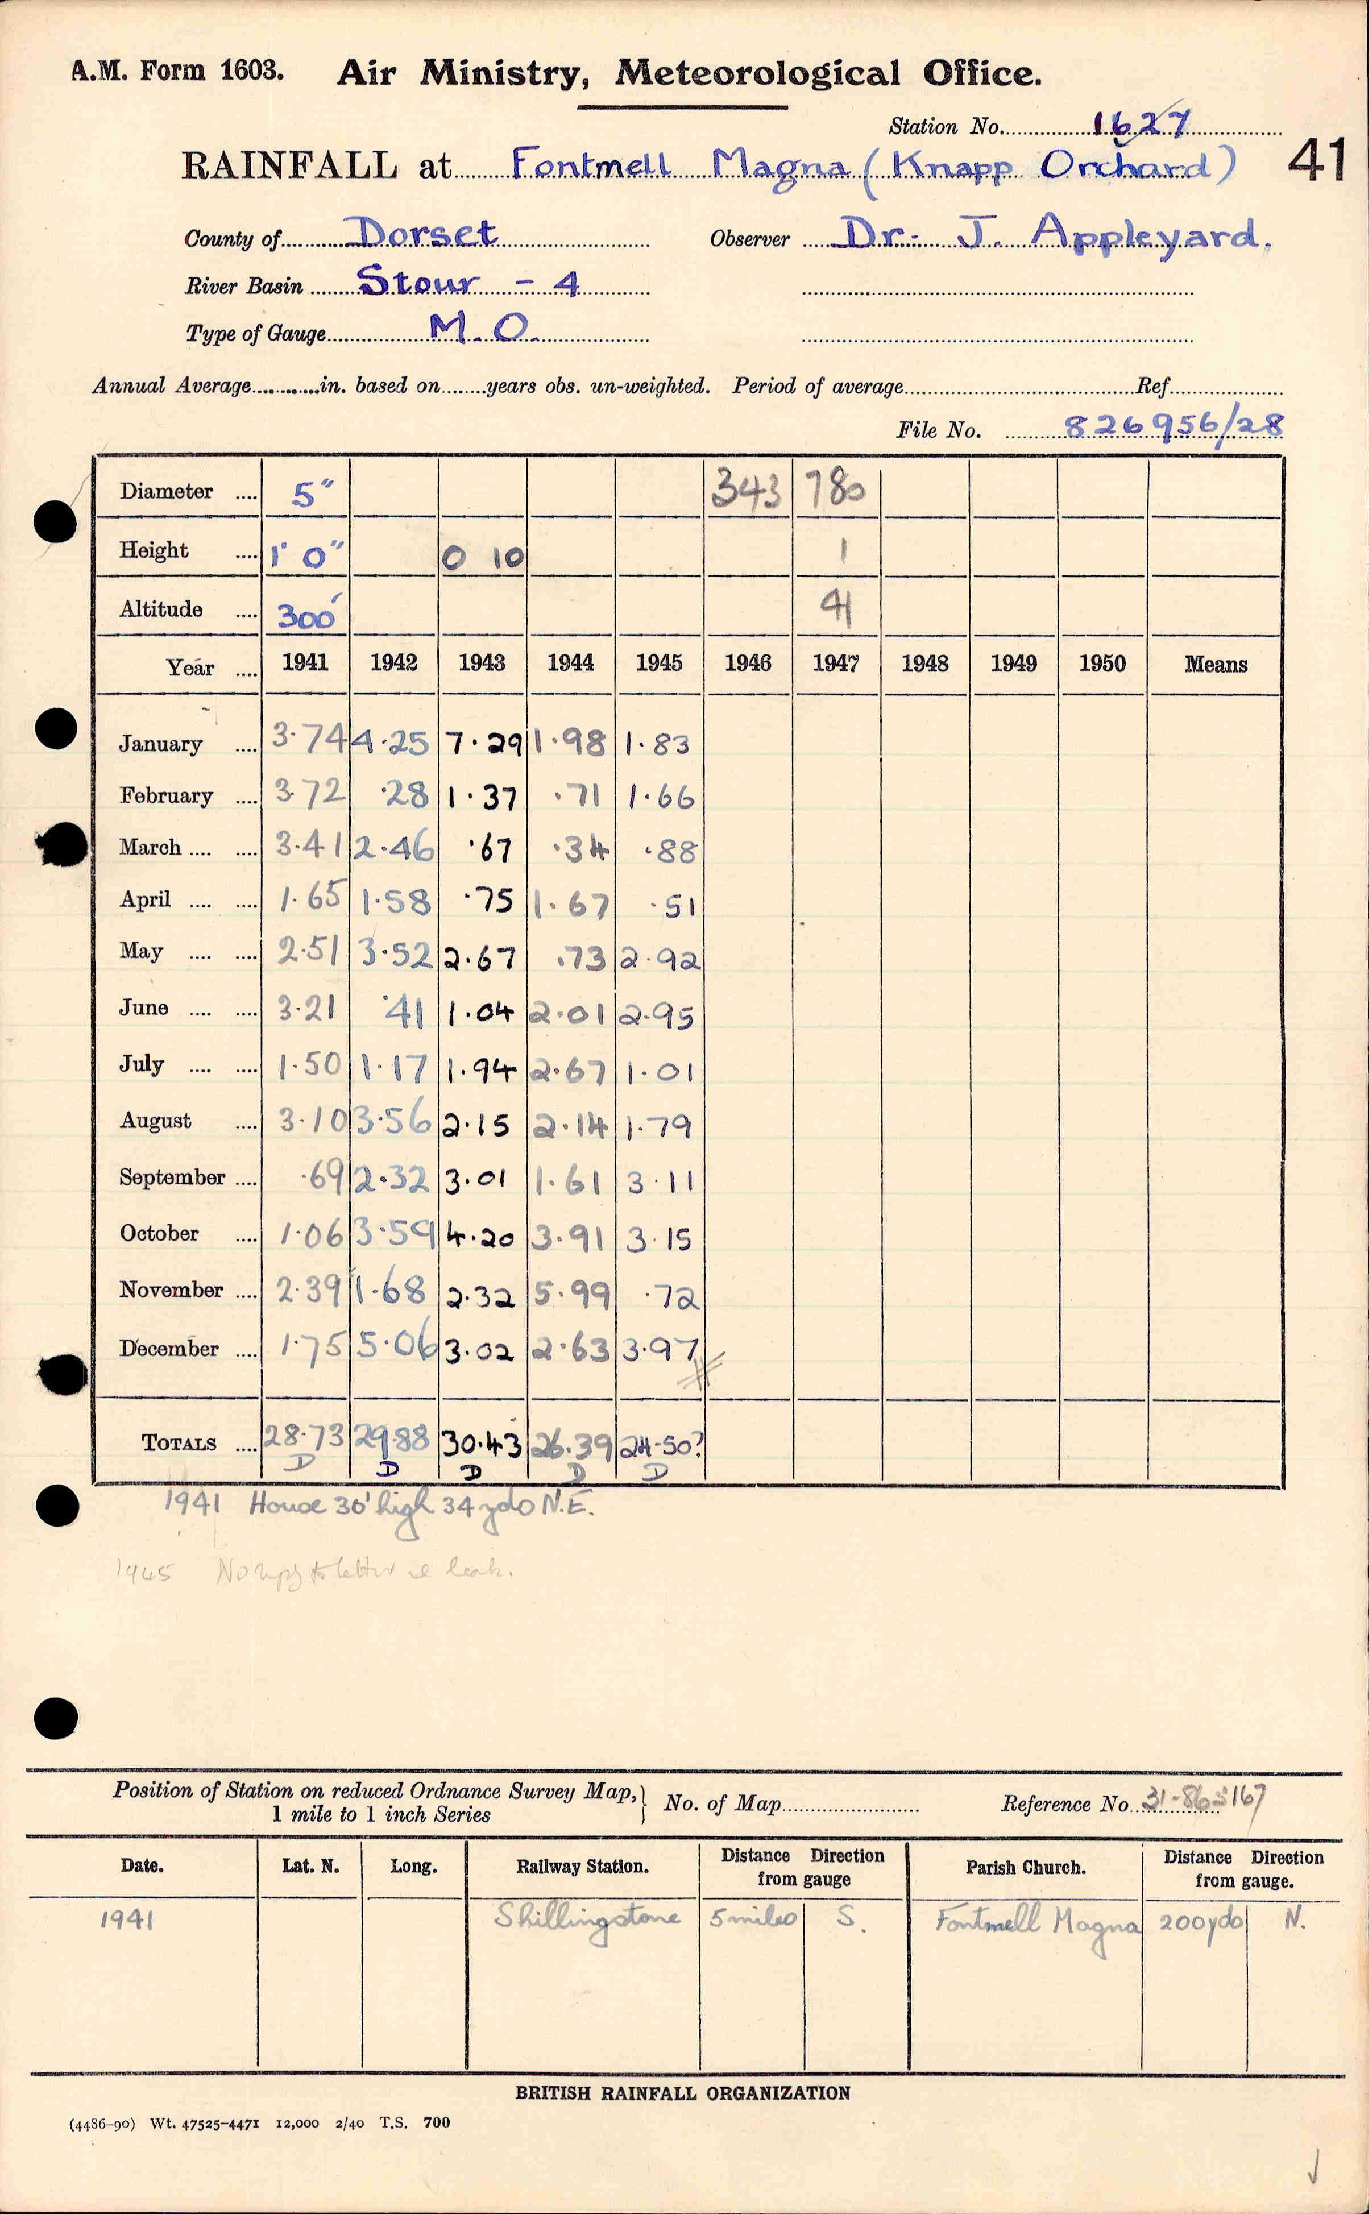 A.M. Form 1603. Air Ministry, Meteorological Office.
Station No. 1627
RAINFALL at Fontmell Magna (Knapp Orchard) 41
County of Dorset Observer Dr. J. Appleyard.
River Basin Stour - 4
Type of Gauge M.O.
Annual Average in. based on years obs. un-weighted. Period of average Ref
File No. 826956/28
Diameter 5" 343 780
Height 1' 0" 0 10 1
Altitude 300' 41
Year 1941 1942 1943 1944 1945 1946 1947 1948 1949 1950 Means
January 3.74 4.25 7.29 1.98 1.83
February 3.72 .28 1.37 .71 1.66
March 3.41 2.46 .67 .34 .88
April 1.65 1.58 .75 1.67 .51
May 2.51 3.52 2.67 .73 2.92
June 3.21 .41 1.04 2.01 2.95
July 1.50 1.17 1.94 2.67 1.01
August 3.10 3.56 2.15 2.14 1.79
September .69 2.32 3.01 1.61 3.11
October 1.06 3.59 4.20 3.91 3.15
November 2.39 1.68 2.32 5.99 .72
December 1.75 5.06 3.02 2.63 3.97
TOTALS 28.73 29.88 30.43 26.39 24.50?
D D D D D
1941 House 30' high 34 yds N.E.
1945 No to letter leak.
Position of Station on reduced Ordnance Survey Map, 1 mile to 1 inch Series } No. of Map Reference No. 31-863167
Date. Lat. N. Long. Railway Station. Distance Direction from gauge Parish Church. Distance Direction from gauge.
1941 Shillingstone 5 miles S. Fontmell Magna 200 yds N.
BRITISH RAINFALL ORGANIZATION
(4486-90) Wt. 47525-4471 12,000 2/40 T.S. 700